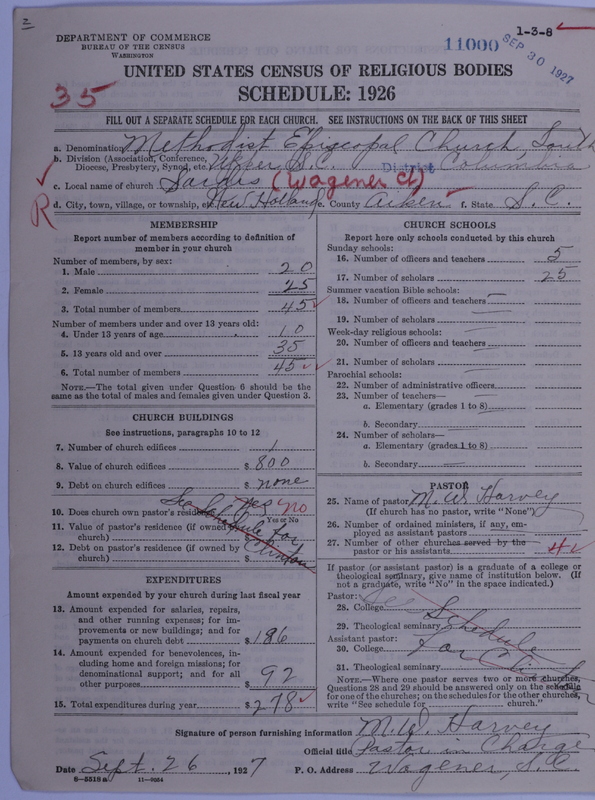 2
1-3-8
DEPARTMENT OF COMMERCE
BUREAU OF THE CENSUS
WASHINGTON
11000
SEP 30 1927
UNITED STATES CENSUS OF RELIGIOUS BODIES
35
SCHEDULE: 1926
FILL OUT A SEPARATE SCHEDULE FOR EACH CHURCH. SEE INSTRUCTIONS ON THE BACK OF THIS SHEET
a. Denomination Methodist Episcopal Church South
b. Division (Association, Conference, Diocese, Presbytery, Synod, etc.) Upper S.C. District Columbia
c. Local name of church Sardis (Wagener Ct)
R
d. City, town, village, or township, etc. New Holland e. County Aiken f. State S. C.
MEMBERSHIP
Report number of members according to definition of
member in your church
Number of members, by sex:
1. Male 20
2. Female 25
3. Total number of members 45
Number of members under and over 13 years old:
4. Under 13 years of age 10
5. 13 years old and over 35
6. Total number of members 45
NOTE.—The total given under Question 6 should be the
same as the total of males and females given under Question 3.
CHURCH BUILDINGS
See instructions, paragraphs 10 to 12
7. Number of church edifices 1
8. Value of church edifices $ 800
9. Debt on church edifices $ none
10. Does church own pastor's residence yes no
Yes or No
11. Value of pastor's residence (if owned by
church) $
12. Debt on pastor's residence (if owned by
church) $
See Schedule for Clinton
EXPENDITURES
Amount expended by your church during last fiscal year
13. Amount expended for salaries, repairs,
and other running expenses; for im-
provements or new buildings; and for
payments on church debt $ 186
14. Amount expended for benevolences, in-
cluding home and foreign missions; for
denominational support; and for all
other purposes $ 92
15. Total expenditures during year $ 278
CHURCH SCHOOLS
Report here only schools conducted by this church
Sunday schools:
16. Number of officers and teachers 5
17. Number of scholars 25
Summer vacation Bible schools:
18. Number of officers and teachers
19. Number of scholars
Week-day religious schools:
20. Number of officers and teachers
21. Number of scholars
Parochial schools:
22. Number of administrative officers
23. Number of teachers—
a. Elementary (grades 1 to 8)
b. Secondary
24. Number of scholars—
a. Elementary (grades 1 to 8)
b. Secondary
PASTOR
25. Name of pastor M. W. Harvey
(If church has no pastor, write "None")
26. Number of ordained ministers, if any, em-
ployed as assistant pastors
27. Number of other churches served by the
pastor or his assistants 4
If pastor (or assistant pastor) is a graduate of a college or
theological seminary, give name of institution below. (If
not a graduate, write "No" in the space indicated.)
Pastor:
28. College
29. Theological seminary
Assistant pastor:
30. College
31. Theological seminary
See Schedule for Clinton
NOTE.—Where one pastor serves two or more churches,
Questions 28 and 29 should be answered only on the schedule
for one of the churches; on the schedules for the other churches,
write "See schedule for church."
Signature of person furnishing information M. W. Harvey
Official title Pastor in Charge
Date Sept. 26, 1927 P. O. Address Wagener, S.C.
8—5518a 11—9354